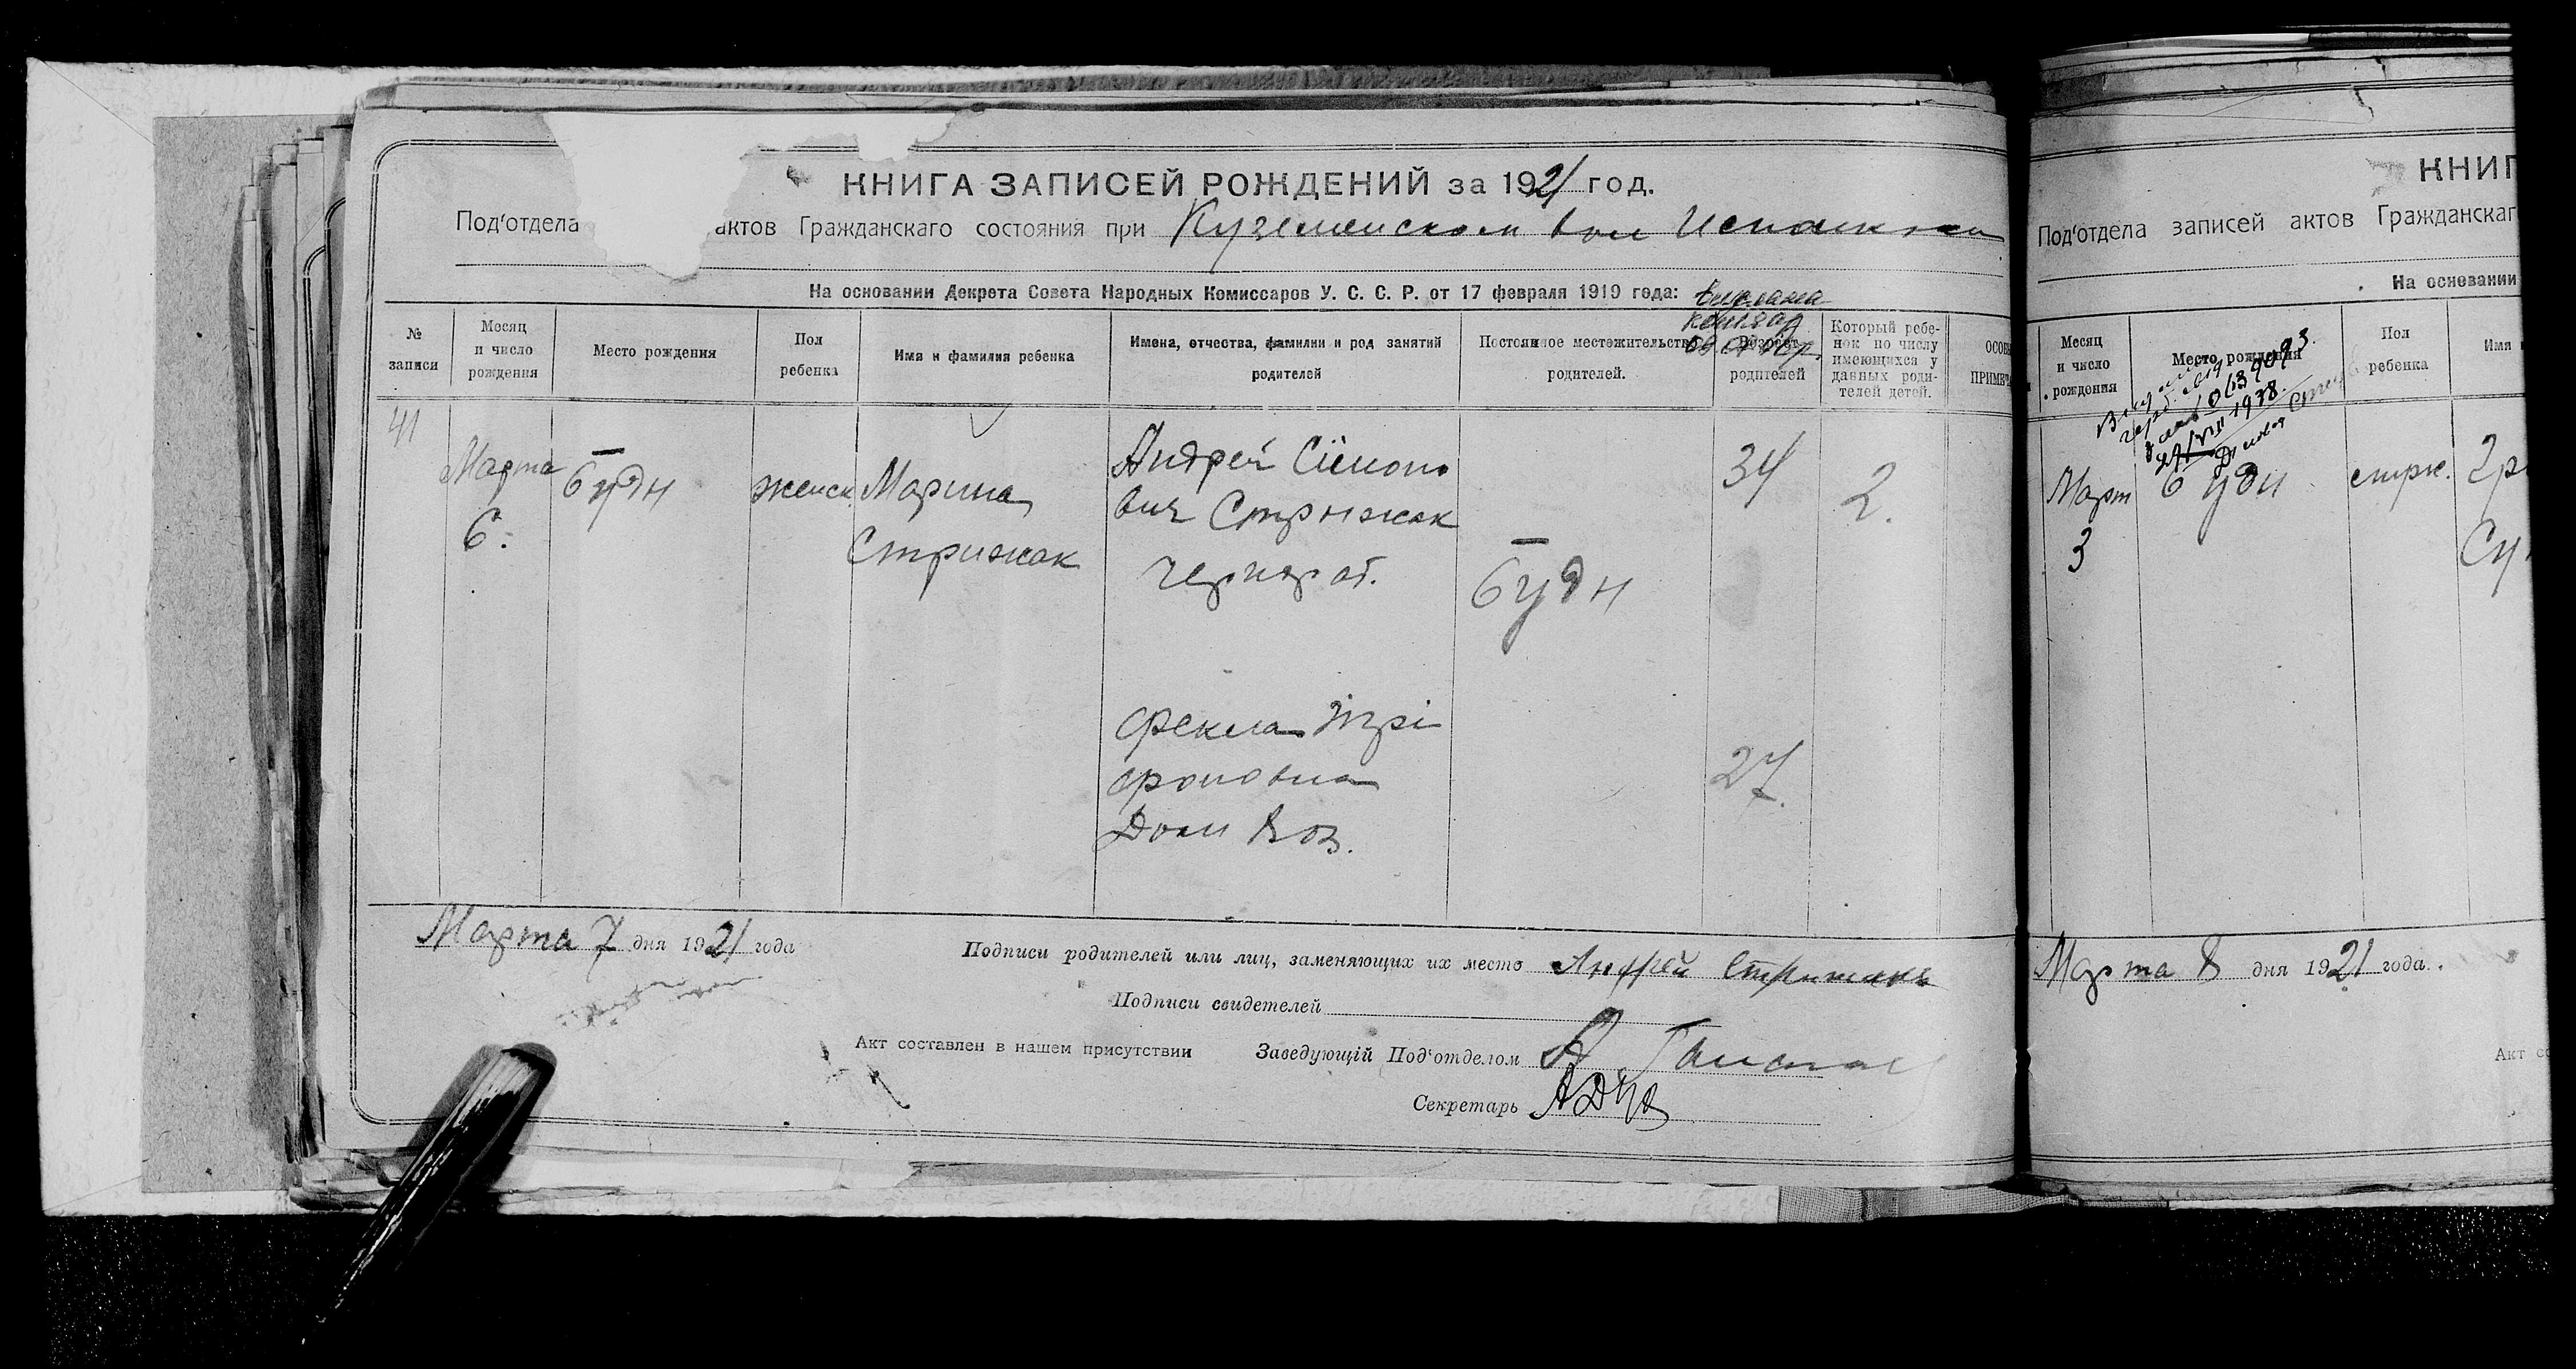 КНИГА ЗАПИСЕЙ РОЖДЕНИЙ за 1921 год.
Под'отдела актов Гражданскаго состояния при Куземенском вол Исполкоми
На основании Декрета Совета Народных Комиссаров У. С. С. Р. от 17 февраля 1919 года:
№ записи
Месяц и число рождения
Место рождения
Пол ребенка
Имя и фамилия ребенка
Имена, отчества, фамилии и род занятий родителей
Постоянное местожительство родителей.
Возраст родителей
Который ребенок по числу имеющихся у данных родителей детей.
41
Марта
6.
Будн
женск.
Марина
Стрижак
Андрей Сімоно
вич Стрижак
чернораб.
Фекла Трі
фоновна
Дом хоз.
Будн
34
27.
2.
Марта 7 дня 1921 года
Подписи родителей или лиц, заменяющих их место Андрей Стрижакъ
Подписи свидетелей
Акт составлен в нашем присутствии Заведующій Под'отделом
Секретарь
КНИГ
Под'отдела записей актов Гражданскаг
На основании
Месяц и число рождения
Место рождения
Пол ребенка
Имя
1938.
Март
3
Будн
Марта 8 дня 1921 года.
Акт со